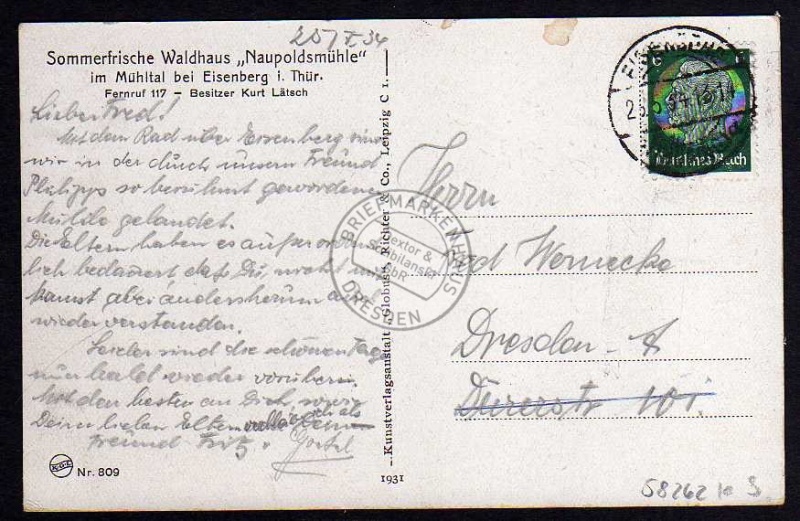 25/I 34
Sommerfrische Waldhaus „Naupoldsmühle”
im Mühltal bei Eisenberg i. Thür.
Fernruf 117 – Besitzer Kurt Lätsch
Lieber Fred!
Mit dem Rad über Eisenberg sind
wir in der durch unsern Freund
Philipps so berühmt gewordenen
Mühle gelandet.
Die Eltern haben es außerordent
lich bedauert daß Du nicht
kannst aber andersherum
wieder verstanden.
Leider sind die schönen Tage
nun bald wieder vorüber.
Mit den besten an Dich, sowie
Deinen lieben Eltern
Freund Fritz.
Nr. 809
Kunstverlagsanstalt „Globus”, Richter & Co., Leipzig C 1
1931
Herrn
Fred Wernecke
Dresden-A
Dürerstr 101
Deutsches Reich
BRIEFMARKENHAUS
Sextor &
Scebilanski
GbR
DRESDEN
58262